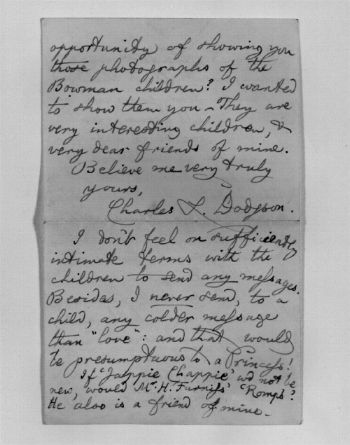 opportunity of showing you
those photographs of the
Bowman children? I wanted
to show them you – They are
very interesting children, &
very dear friends of mine.
Believe me very truly
yours,
Charles L. Dodgson.
I don't feel on sufficiently
intimate terms with the
children to send any messages.
Besides, I never send, to a
child, any colder message
than "love": and that would
be presumptuous to a Princess!
If "Jappie Chappie" wd not be
new, would Mr. H. Furniss' "Romps"?
He also is a friend of mine.